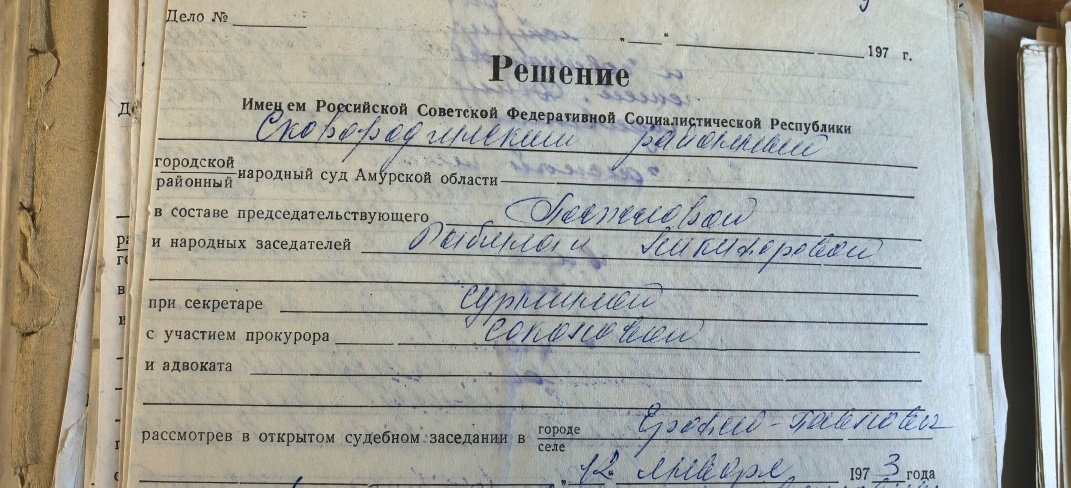 Дело №
„ “ 197 г.
Решение
Именем Российской Советской Федеративной Социалистической Республики
Сковородинский районный
городской
районный народный суд Амурской области
в составе председательствующего
и народных заседателей Рыбина и Никифоровой
при секретаре
с участием прокурора Соколовой
и адвоката
рассмотрев в открытом судебном заседании в городе Ерофей-Павлович
селе
„12“ января 1973 года